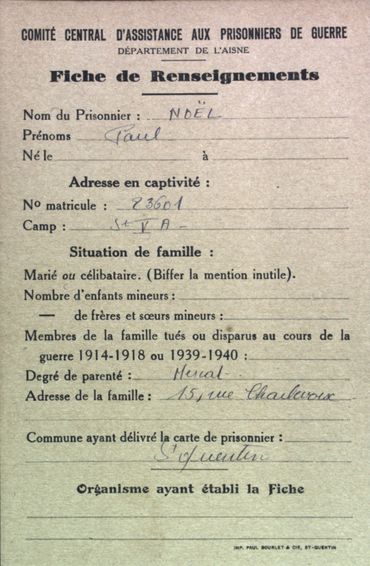 COMITÉ CENTRAL D'ASSISTANCE AUX PRISONNIERS DE GUERRE
DÉPARTEMENT DE L'AISNE
Fiche de Renseignements
Nom du Prisonnier : NOËL
Prénoms Paul
Né le à
Adresse en captivité :
No matricule : 23601
Camp : St V A -
Situation de famille :
Marié ou célibataire. (Biffer la mention inutile).
Nombre d'enfants mineurs :
— de frères et sœurs mineurs :
Membres de la famille tués ou disparus au cours de la
guerre 1914-1918 ou 1939-1940 :
Degré de parenté :
Adresse de la famille : 15, rue Charlevoix
Commune ayant délivré la carte de prisonnier :
St Quentin
Organisme ayant établi la Fiche
IMP. PAUL BOURLET & CIE, ST-QUENTIN